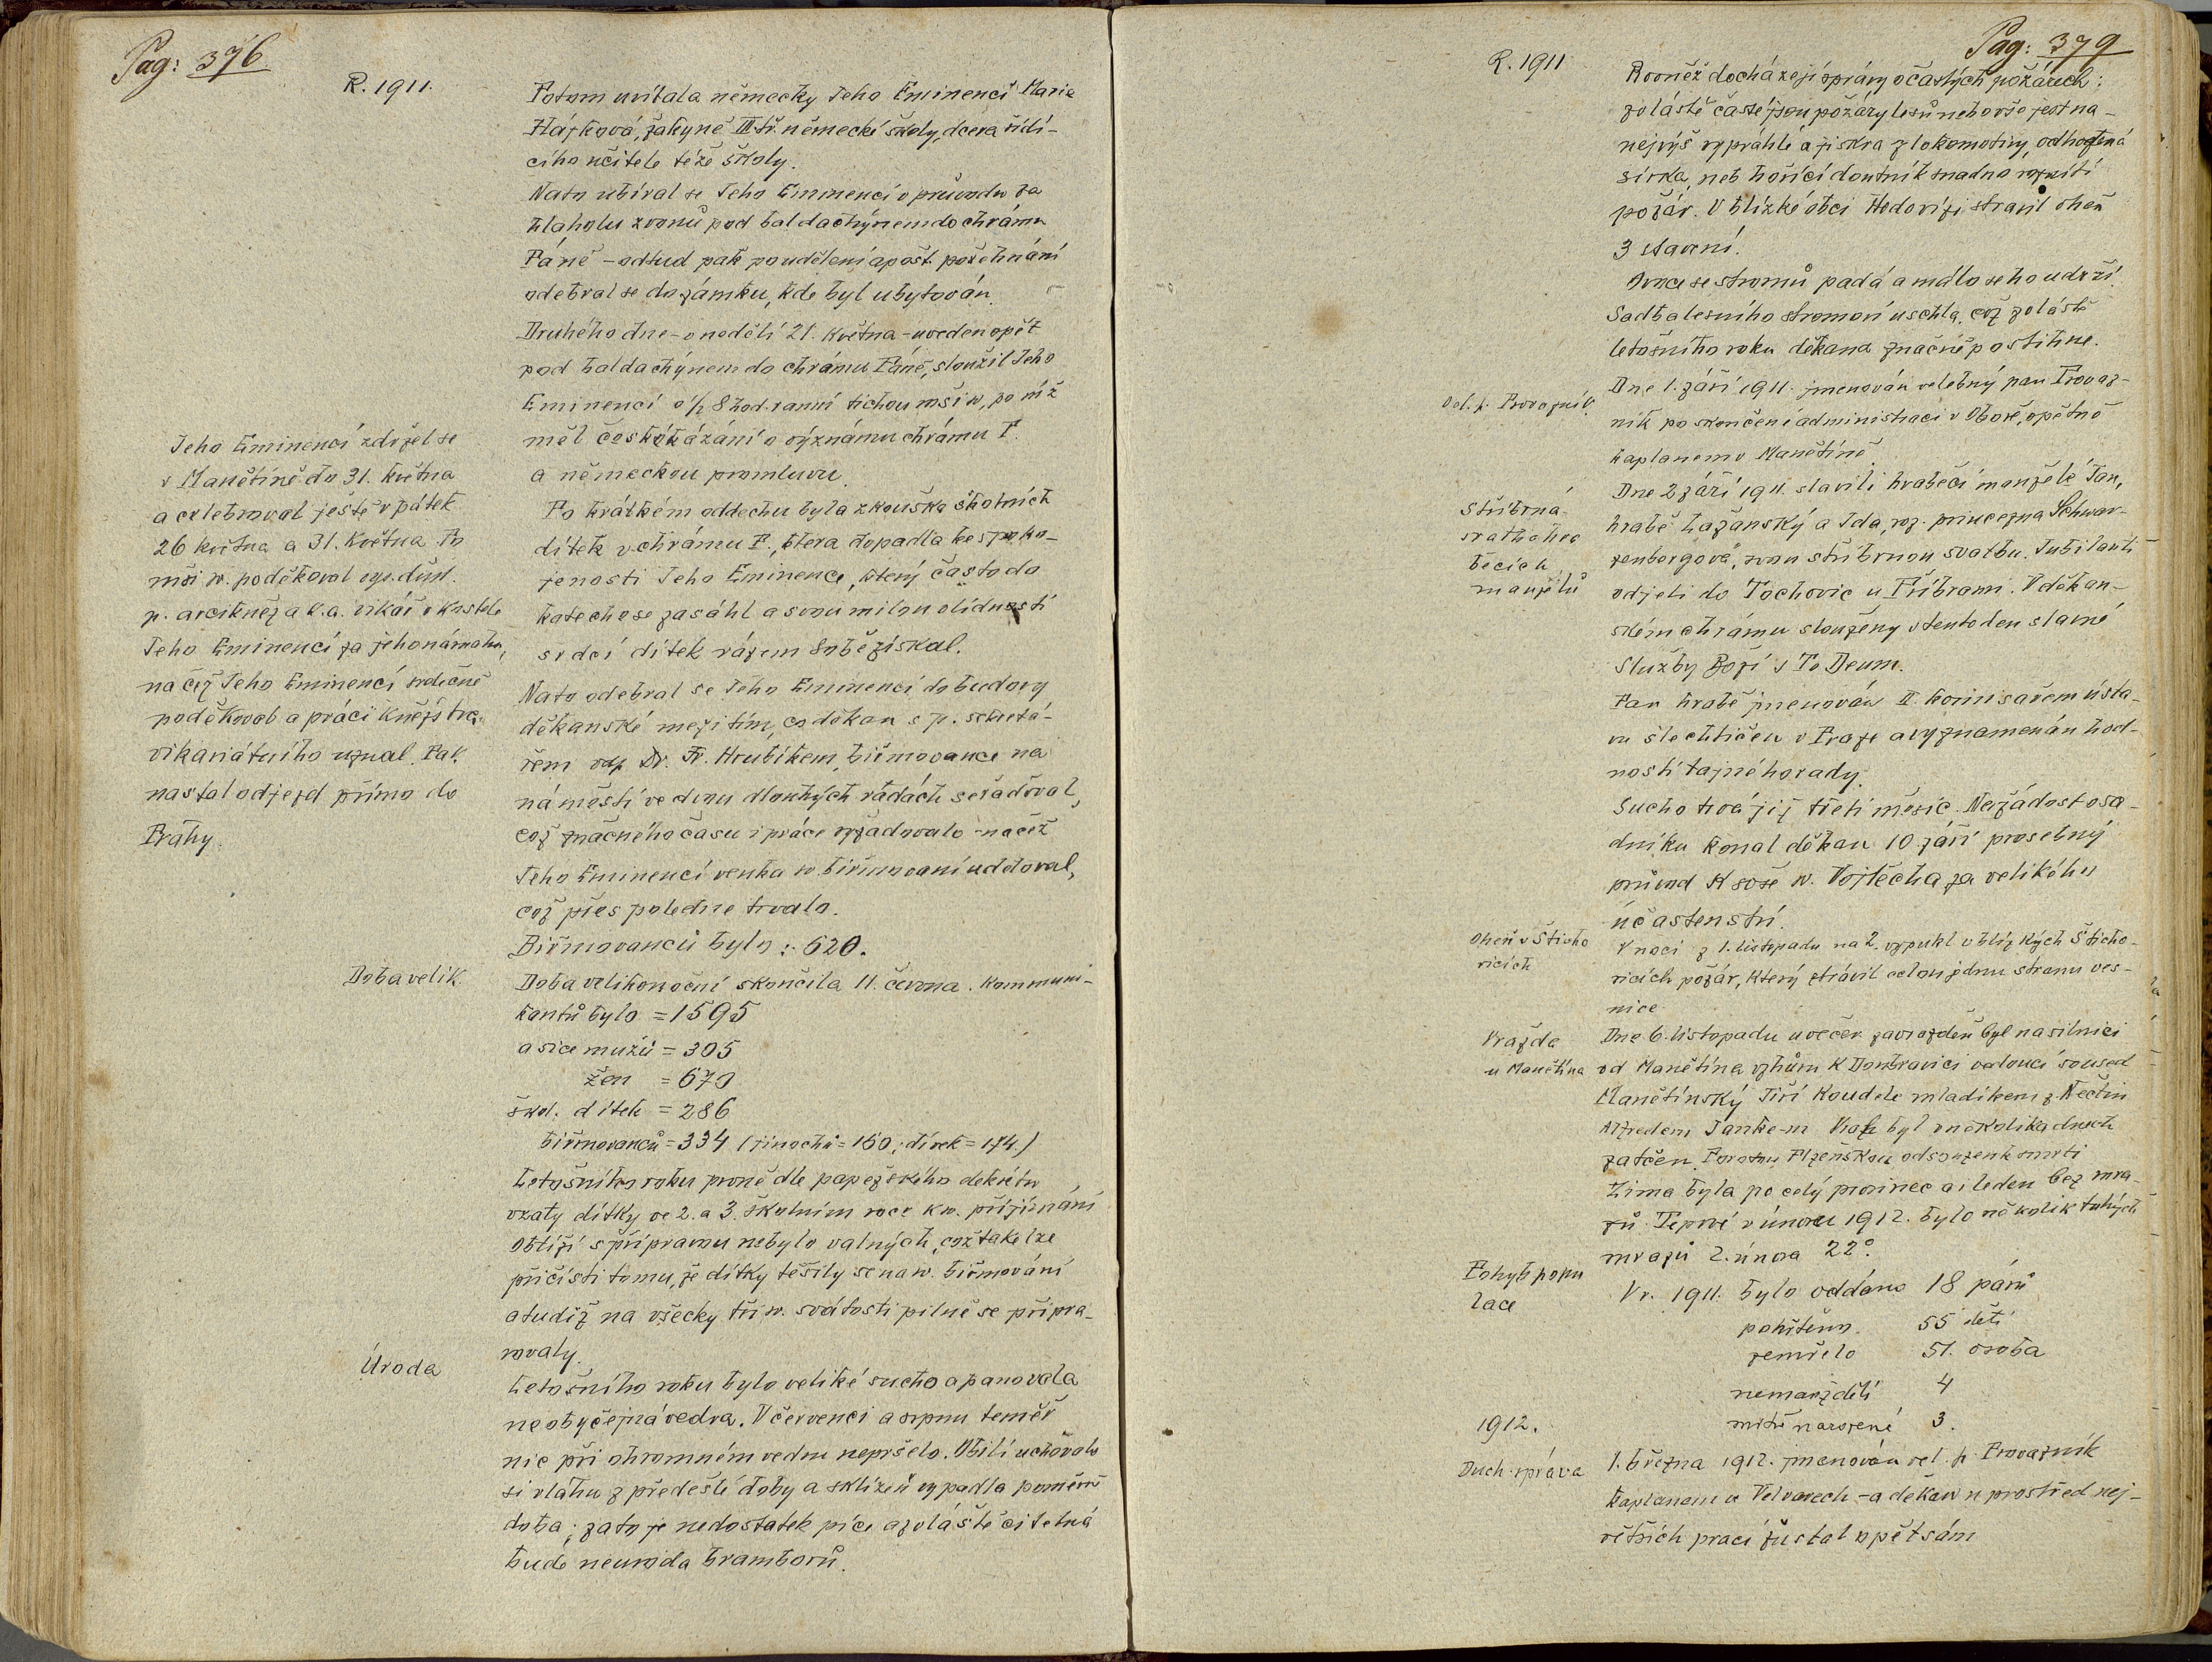 Pag: 376
R. 1911.
Potom uvítala německy Jeho Eminenci Marie
Hájková, žákyně III tř. německé školy, dcera řídí-
cího učitele téže školy.
Nato ubíral se Jeho Eminencí v průvodu za
hlaholu zvonů pod baldachýnem do chrámu
Páně – odtud pak po udělení apošt. požehnání
odebral se do zámku, kde byl ubytován.
Druhého dne – v neděli 21. května – uveden opět
pod baldachýnem do chrámu Páně, sloužil Jeho
Eminencí o ½ 8 hod. ranní tichou mši sv., po níž
měl české kázání o významu chrámu P.
a německou promluvu.
Po krátkém oddechu byla zkouška školních
dítek v chrámu P., ktera dopadla ke spoko-
jenosti Jeho Eminence, který často do
katechese zasáhl a svou milou vlídností
srdcí dítek rázem sobě získal.
Nato odebral se Jeho Eminencí do budovy
děkanské mezitím, co děkan s p. sekretá-
řem vdp. Dr. Fr. Hrubíkem, biřmovance na
náměstí ve dvou dlouhých řadách seřaďoval,
což značného času i práce vyžadovalo – načež
Jeho Eminencí venku sv. biřmovaní uděloval,
což přes poledne trvalo.
Biřmovanců bylo : 620.
Jeho Eminencí zdržel se
v Manětíně do 31. května
a celebroval ještě v pátek
26 května a 31. května. Po
mši sv. poděkoval vys. důst.
p. arcikněz a b. a. vikář v kostele
Jeho Eminencí za jeho námahu,
načež Jeho Eminencí srdečně
poděkoval a práci kněžstva
vikariátního uznal. Pak
nastal odjezd přímo do
Prahy.
Doba velik.
Doba velikonoční skončila 11. června. Kommuni-
kantů bylo = 1595
a sice mužů = 305
žen = 670
škol. dítek = 286
biřmovanců = 334 (jinochů = 160; dívek = 174.)
Letošního roku prvně dle papežského dekretu
vzaty dítky ve 2. a 3. školním roce k sv. přijímání
Obtíží s přípravou nebylo valných, což také lze
přičísti tomu, že dítky těšily se na sv. biřmování
a tudíž na všecky tři sv. svátosti pilně se připra-
vovaly.
Úroda
Letošního roku bylo veliké sucho a panovala
neobyčejná vedra. V červenci a srpnu téměř
nic při ohromném vedru nepršelo. Obilí uchovalo
si vláhu z předešlé doby a sklizeň vypadla poměrně
dobá; zato je nedostatek píce a zvláště citelná
bude neuroda bramborů.
Pag: 379
R. 1911
Rovněž docházejí zprávy o častých požárech:
zvláště časté jsou požáry lesů neb vše jest na-
nejvýš vyprahlé a jiskra z lokomotivy, odhozená
sirka, neb hořící doutník snadno roznítí
požár. V blízké obci Hedovízi strávil oheň
3 stavení.
Ovoce se stromů padá a málo se ho udrží.
Sadba lesního stromoví uschla, což zvláště
letošního roku děkana značně postihne.
Vel. p. Provazník
Dne 1. září 1911. jmenován velebný pan Provaz-
ník po skončení administraci v Oboře, opětně
kaplanem v Manětíně.
Stříbrná
svatba hra
běcích
manželů
Dne 2 září 1911. slavili hraběcí manželé Jan,
hrabě Lažanský a Ida, roz. princezna Schwar-
zenbergová, svou stříbrnou svatbu. Jubilanti
odjeli do Tochovic u Příbrami. V děkan-
ském chrámu slouženy v tento den slavné
Služby Boží s Te Deum.
Pan hrabě jmenován II. komisařem ústa-
vu šlechtičen v Praze a vyznamenán hod-
ností tajného rady.
Sucho trvá již třetí měsíc. Na žádost osa-
dníku konal děkan 10 září prosebný
průvod k soše sv. Vojtěcha za velikého
účastenství.
Oheň v Štícho
vicích
V noci z 1. listopadu na 2. vypukl v blízkých Štícho-
vicích požár, který strávil celou jednu stranu ves-
nice.
Vražda
u Manětína
Dne 6. listopadu u večer zavražděn byl na silnici
od Manětína vzhůru k Doubravici vedoucí soused
Manětínský Jiří Koudele mladíkem z Nečtin
Alfredem Janke-m Vrah byl v několika dnech
zatčen. Porotou Plzeňskou odsouzen k smrti
Zima byla po celý prosinec a i leden bez mra-
zů. Teprvé v únoru 1912. bylo několik tuhých
mrazů 2. února 22°.
Pohyb popu
lace
V r. 1911. bylo oddáno 18 párů
pokřtěno. 55 dětí
zemřelo 51. osoba
nemanž. dětí 4
mrtvě narozené 3.
1912.
Duch. správa
1. března 1912. jmenován vel. p. Provazník
kaplanem v Velvarech – a děkan u prostřed nej-
větších prací zůstal opět sám